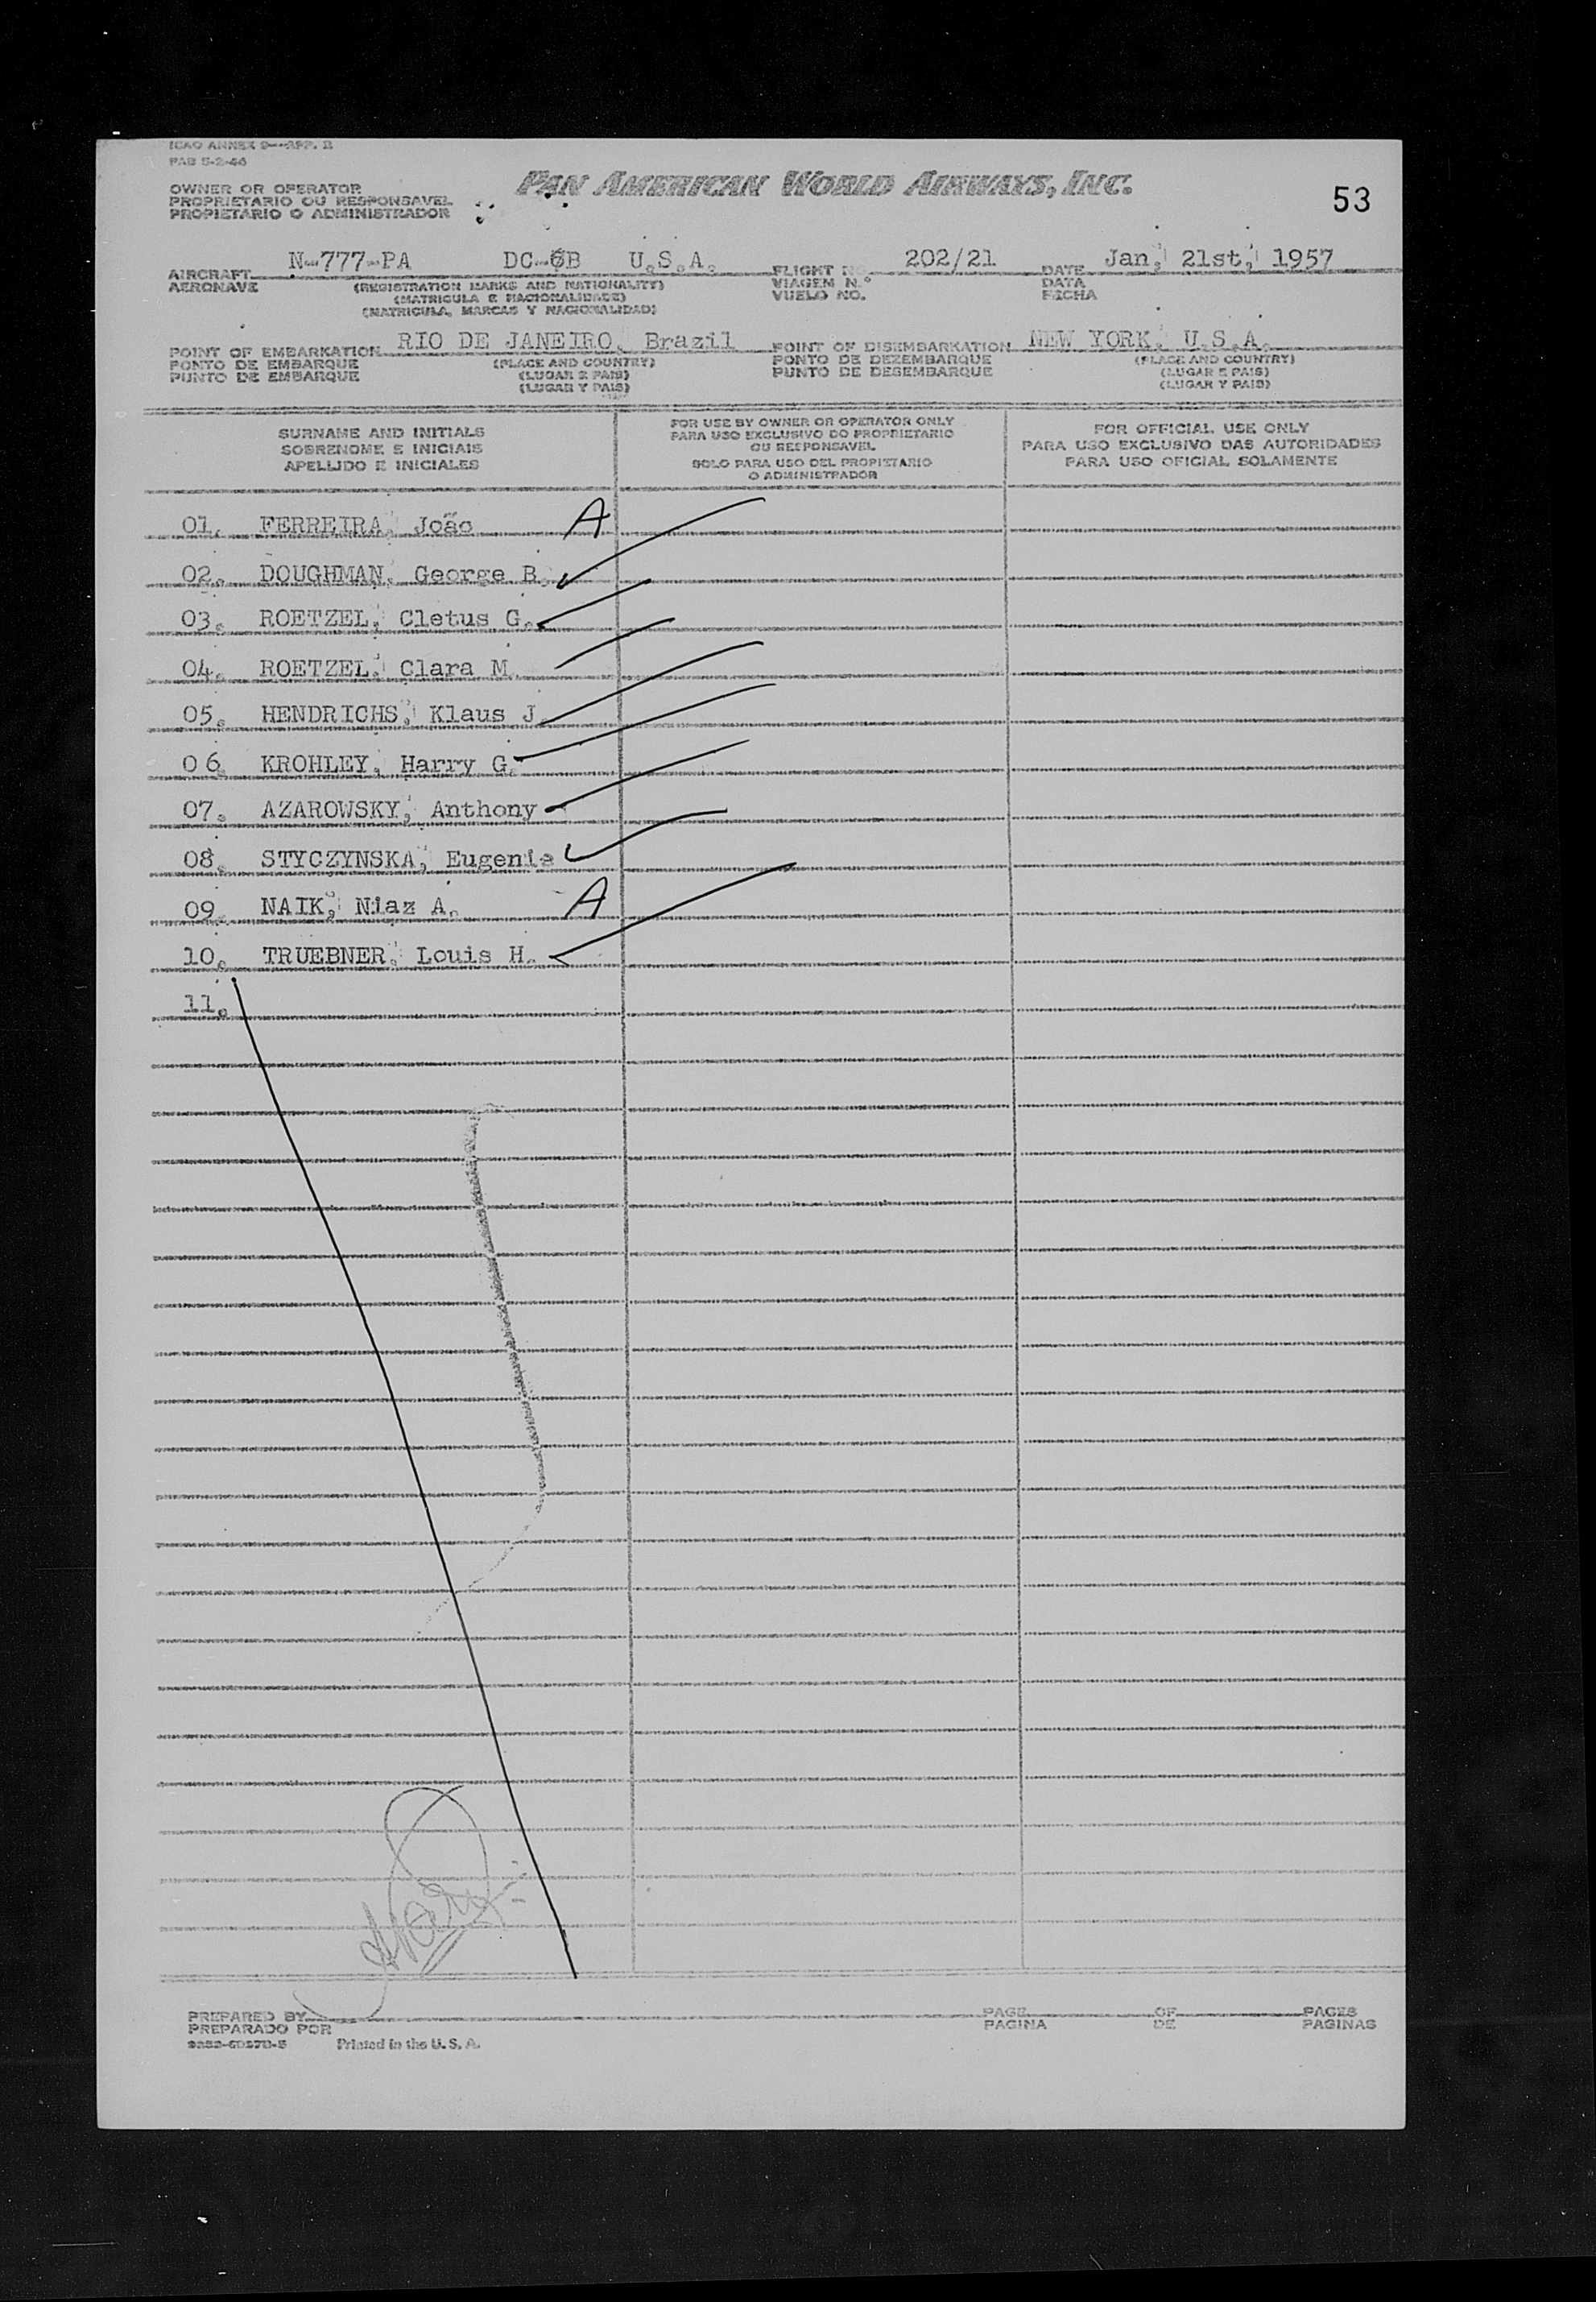 ICAO ANNEX 9—APP. B
PAB 5-2-46
OWNER OR OPERATOR
PROPRIETARIO OU RESPONSAVEL
PROPIETARIO O ADMINISTRADOR
PAN AMERICAN WORLD AIRWAYS, INC.
53
AIRCRAFT N-777-PA DC-6B U.S.A. FLIGHT NO. 202/21 DATE Jan, 21st, 1957
AERONAVE (REGISTRATION MARKS AND NATIONALITY) VIAGEM N.° DATA
(MATRICULA E NACIONALIDADE) VUELO NO. FECHA
(MATRICULA, MARCAS Y NACIONALIDAD)
POINT OF EMBARKATION RIO DE JANEIRO, Brazil POINT OF DISEMBARKATION NEW YORK, U.S.A.
PONTO DE EMBARQUE (PLACE AND COUNTRY) PONTO DE DEZEMBARQUE (PLACE AND COUNTRY)
PUNTO DE EMBARQUE (LUGAR E PAIS) PUNTO DE DESEMBARQUE (LUGAR E PAIS)
(LUGAR Y PAIS) (LUGAR Y PAIS)
SURNAME AND INITIALS
SOBRENOME E INICIAIS
APELLIDO E INICIALES
FOR USE BY OWNER OR OPERATOR ONLY
PARA USO EXCLUSIVO DO PROPRIETARIO
OU RESPONSAVEL
SOLO PARA USO DEL PROPIETARIO
O ADMINISTRADOR
FOR OFFICIAL USE ONLY
PARA USO EXCLUSIVO DAS AUTORIDADES
PARA USO OFICIAL SOLAMENTE
01. FERREIRA, João A
02. DOUGHMAN, George B.
03. ROETZEL, Cletus G.
04. ROETZEL, Clara M.
05. HENDRICHS, Klaus J.
06. KROHLEY, Harry G.
07. AZAROWSKY, Anthony
08. STYCZYNSKA, Eugenia
09. NAIK, Niaz A. A
10. TRUEBNER, Louis H.
11.
PREPARED BY PAGE OF PAGES
PREPARADO POR PAGINA DE PAGINAS
Printed in the U. S. A.